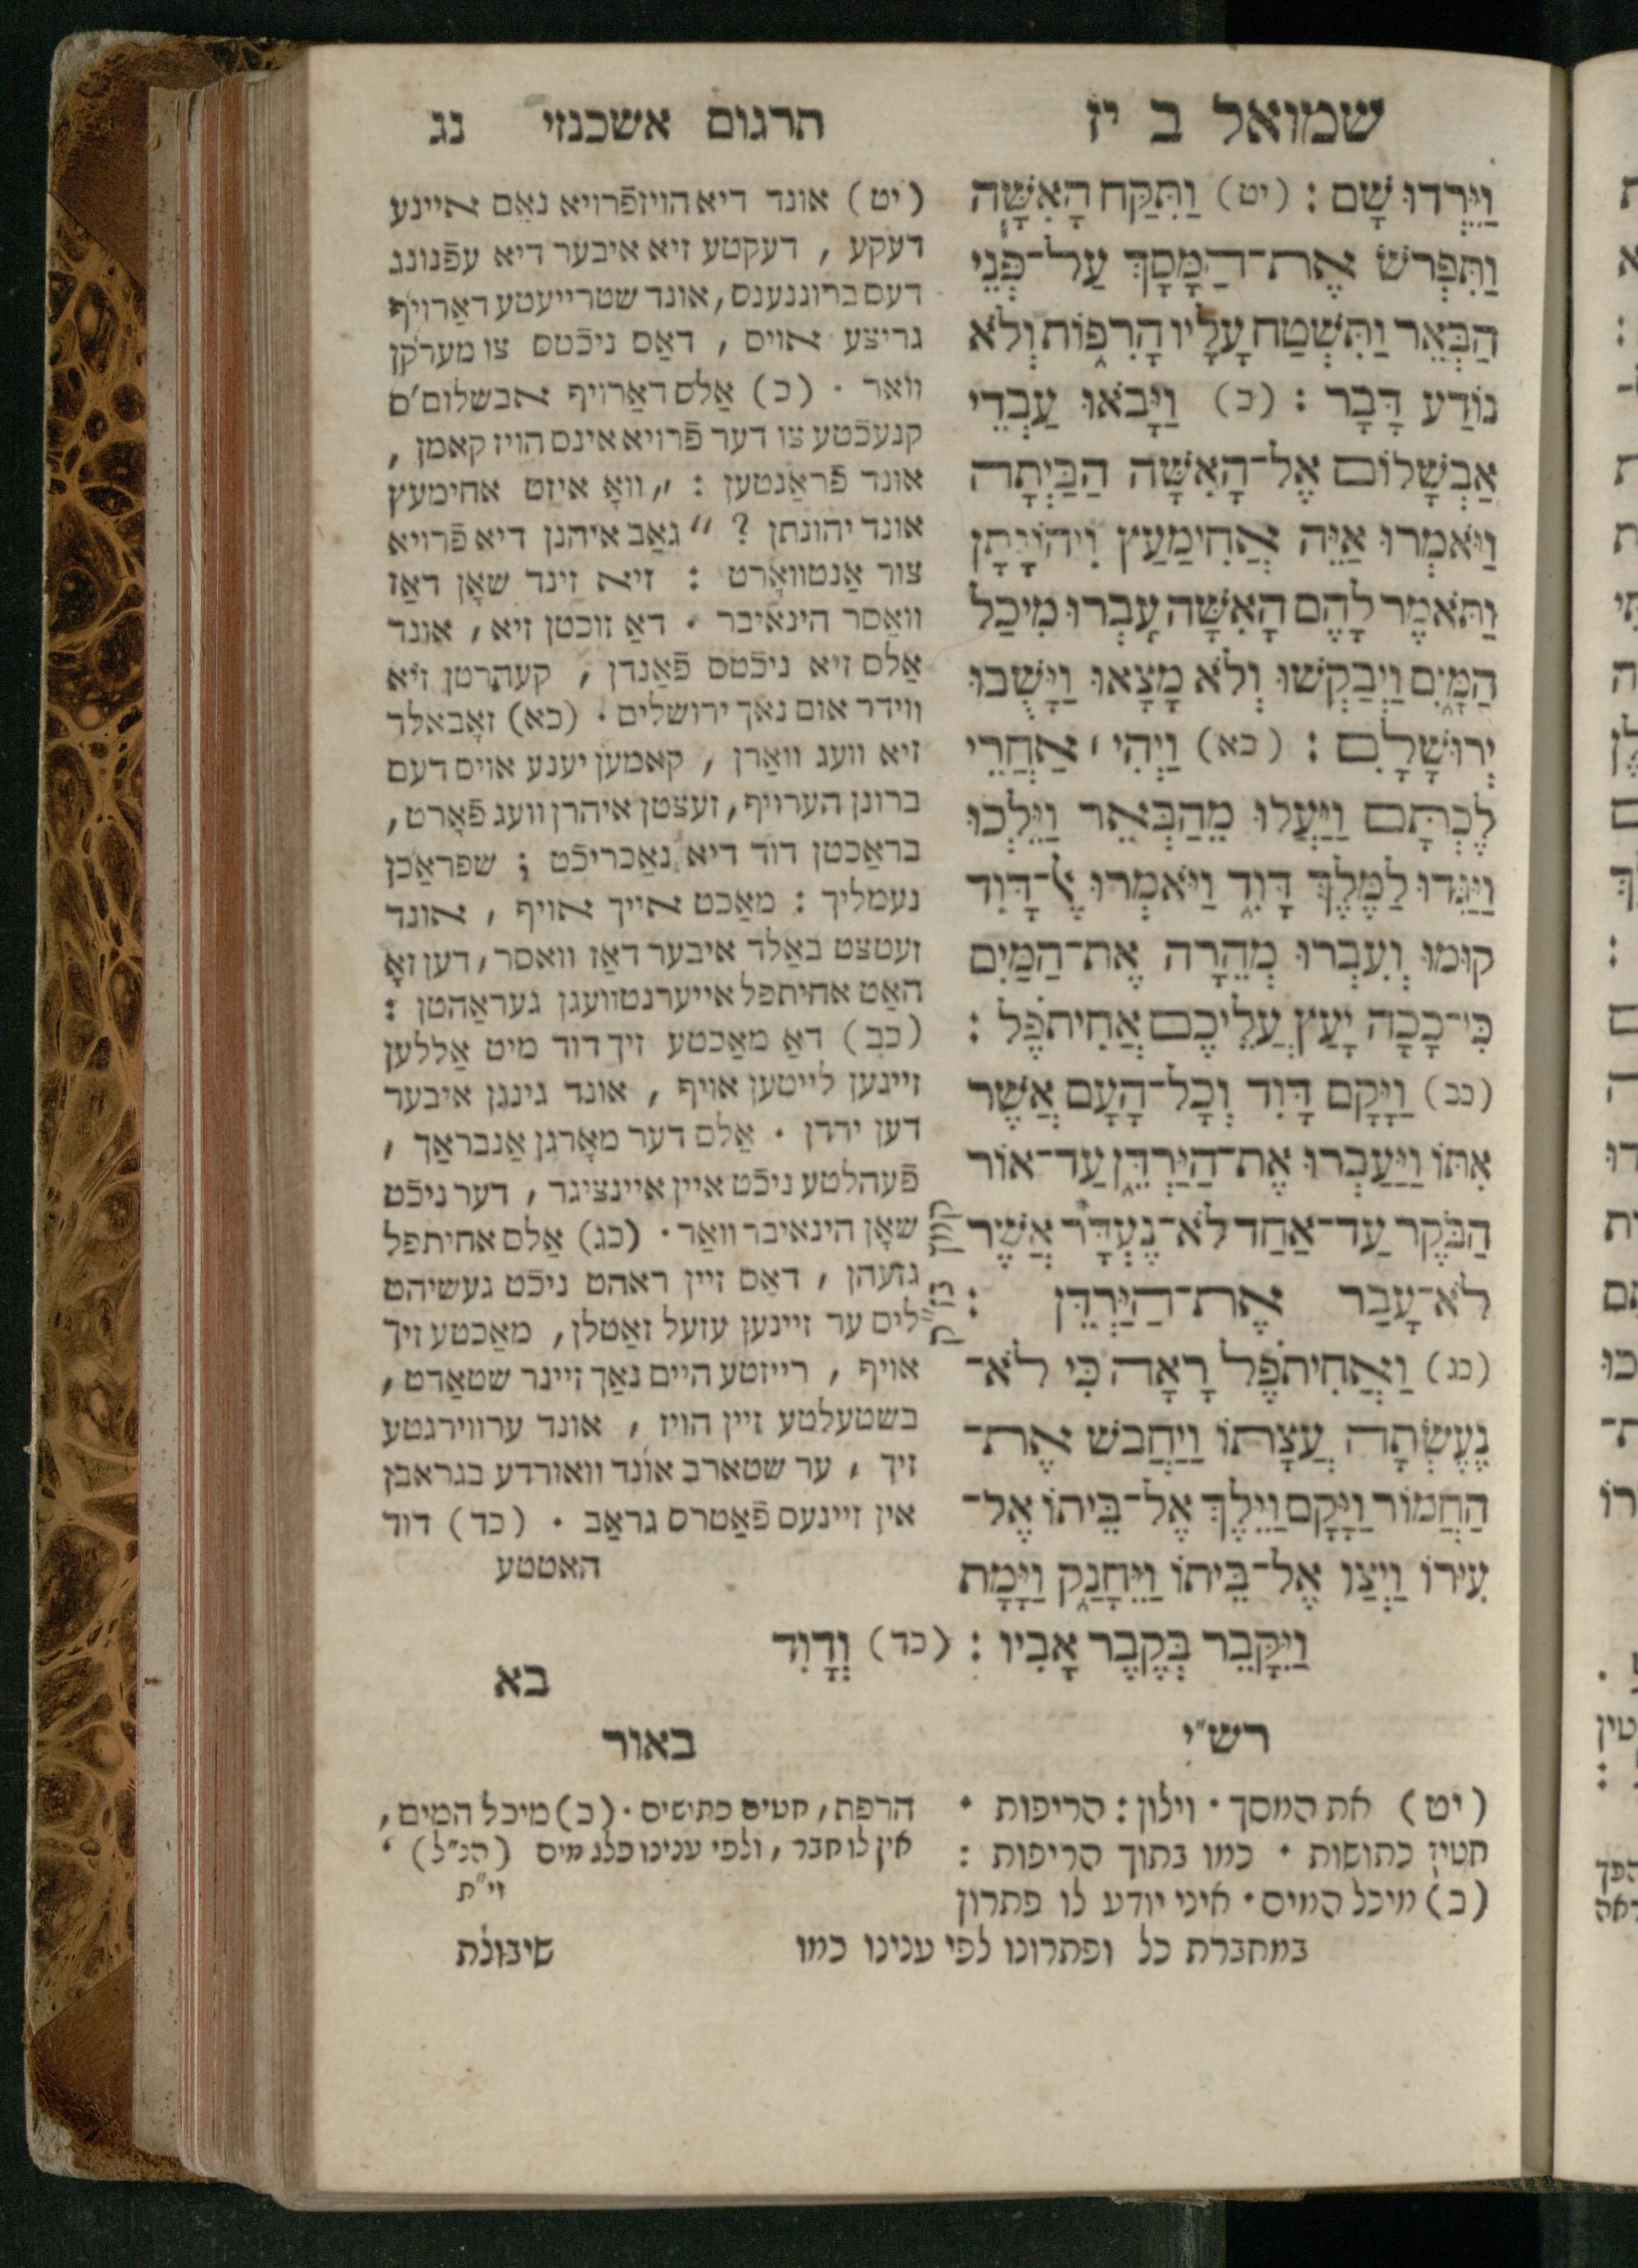 שמואל ב יז
תרגום אשכנזי נג
וַיֵּרְדוּ שָׁם : (יט) וַתִּקַּח הָאִשָּׁה
וַתִּפְרֹשׂ אֶת־הַמָּסָךְ עַל־פְּנֵי
הַבְּאֵר וַתִּשְׁטַח עָלָיו הָרִפוֹת וְלֹא
נוֹדַע דָּבָר : (כ) וַיָּבֹאוּ עַבְדֵי
אַבְשָׁלוֹם אֶל־הָאִשָּׁה הַבַּיְתָה
וַיֹּאמְרוּ אַיֵּה אֲחִימַעַץ וִיהוֹנָתָן
וַתֹּאמֶר לָהֶם הָאִשָּׁה עָבְרוּ מִיכַל
הַמָּיִם וַיְבַקְשׁוּ וְלֹא מָצָאוּ וַיָּשֻׁבוּ
יְרוּשָׁלָםִ : (כא) וַיְהִי׀אַחֲרֵי
לֶכְתָּם וַיַּעֲלוּ מֵהַבְּאֵר וַיֵּלְכוּ
וַיַּגִּדוּ לַמֶּלֶךְ דָּוִד וַיֹּאמְרוּ אֶל־דָּוִד
קוּמוּ וְעִבְרוּ מְהֵרָה אֶת־הַמַּיִם
כִּי־כָכָה יָעַץ עֲלֵיכֶם אֲחִיתֹפֶל :
(כב) וַיָּקָם דָּוִד וְכָל־הָעָם אֲשֶׁר
אִתּוֹ וַיַּעַבְרוּ אֶת־הַיַּרְדֵּן עַד־אוֹר
הַבֹּקֶר עַד־אַחַד לֹא־נֶעְדָּר אֲשֶׁר
לֹא־עָבַר אֶת־הַיַּרְדֵּן :
(כג) וַאֲחִיתֹפֶל רָאָה כִּי לֹא־
נֶעֶשְׂתָה עֲצָתוֹ וַיַּחֲבֹשׁ אֶת־
הַחֲמוֹר וַיָּקָם וַיֵּלֶךְ אֶל־בֵּיתוֹ אֶל־
עִירוֹ וַיְצַו אֶל־בֵּיתוֹ וַיֵּחָנַק וַיָּמָת
וַיִּקָּבֵר בְּקֶבֶר אָבִיו : (כד) וְדָוִד
בא
(יט) אונד דיא הויזפֿרויא נאַם איינע
דעקע , דעקטע זיא איבער דיא עפֿנונג
דעס ברוננענס, אונד שטרייעטע דאַרויף
גריצע אויס , דאַס ניכֿטס צו מערקן
וואר . (כ) אַלס דאַרויף אבשלום'ם
קנעכֿטע צו דער פֿרויא אינס הויז קאמן ,
אונד פֿראַגטען : ״וואָ איזט אחימעץ
אונד יהונתן ? ״ גאַב איהנן דיא פֿרויא
צור אַנטוואָרט : זיא זינד שאָן דאַז
וואַסר הינאיבר . דאַ זוכטן זיא, אונד
אַלס זיא ניכֿטס פֿאַנדן , קעהרטן זיא
ווידר אום נאך ירושלים . (כא) זאָבאלד
זיא וועג וואַרן , קאמען יענע אויס דעם
ברונן הערויף, זעצטן איהרן וועג פֿאָרט,
בראַכטן דוד דיא נאַכריכֿט ; שפראַכן
נעמליך : מאַכט אייך אויף , אונד
זעטצט באַלד איבער דאַז וואסר, דען זאָ
האַט אחיתפל אייערנטוועגן געראַהטן :
(כב) דאַ מאַכטע זיך דוד מיט אַללען
זיינען לייטען אויף , אונד גינגן איבער
דען ירדן . אַלס דער מאָרגן אַנבראַך ,
פֿעהלטע ניכֿט איין איינציגר , דער ניכֿט
שאָן הינאיבר וואַר . (כג) אַלס אחיתפל
גזעהן , דאַס זיין ראהט ניכֿט געשיהט
ליס ער זיינען עזעל זאַטלן, מאַכטע זיך
אויף , רייזטע היים נאַך זיינר שטאַדט,
בשטעלטע זיין הויז , אונד ערווירגטע
זיך , ער שטארב אונד וואורדע בגראבן
אין זיינעס פֿאַטרס גראַב . (כד) דוד
האטטע
רש״י
(יט) את המסך . וילון : הריפות .
חטין כתושות . כמו בתוך הריפות :
(כ) מיכל המים . איני יודע לו פתרון
במחברת כל ופתרונו לפי ענינו כמו
שיבולת
באור
הרפת, חטים כתושים . (כ) מיכל המים,
אין לו חבר, ולפי ענינו פלג מים (הנ״ל) .
וי״ת